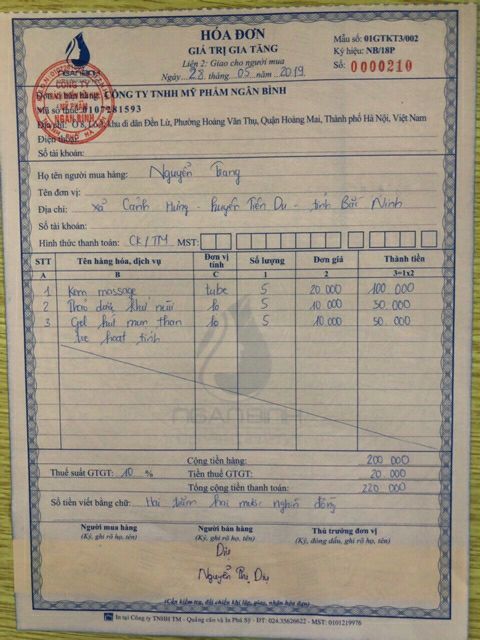 HÓA ĐƠN
GIÁ TRỊ GIA TĂNG
Liên 2: Giao cho người mua
Ngày 28 tháng 05 năm 2019
Mẫu số: 01GTKT3/002
Ký hiệu: NB/18P
Số: 0000210
NGANBINH
Đơn vị bán hàng: CÔNG TY TNHH MỸ PHẨM NGÂN BÌNH
Mã số thuế: 0107281593
Địa chỉ: Ô 8, Lô 3, khu di dân Đền Lừ, Phường Hoàng Văn Thụ, Quận Hoàng Mai, Thành phố Hà Nội, Việt Nam
Điện thoại:
Số tài khoản:
CÔNG TY
MỸ PHẨM
NGÂN BÌNH
Họ tên người mua hàng: Nguyễn Trang
Tên đơn vị:
Địa chỉ: xã Cảnh Hưng - huyện Tiên Du - tỉnh Bắc Ninh
Số tài khoản:
Hình thức thanh toán: CK/TM MST:
STT Tên hàng hóa, dịch vụ Đơn vị tính Số lượng Đơn giá Thành tiền
A B C 1 2 3=1x2
1 Kem massage tube 5 20.000 100.000
2 Thảo dược khử mùi lọ 5 10.000 50.000
3 Gel hút mụn than lọ 5 10.000 50.000
tre hoạt tính
NGANBINH
Cộng tiền hàng: 200.000
Thuế suất GTGT: 10 % Tiền thuế GTGT: 20.000
Tổng cộng tiền thanh toán: 220.000
Số tiền viết bằng chữ: Hai trăm hai mươi nghìn đồng
Người mua hàng Người bán hàng Thủ trưởng đơn vị
(Ký, ghi rõ họ, tên) (Ký, ghi rõ họ, tên) (Ký, đóng dấu, ghi rõ họ, tên)
Dịu
Nguyễn Thị Dịu
(Cần kiểm tra, đối chiếu khi lập, giao, nhận hóa đơn)
In tại Công ty TNHH TM - Quảng cáo và In Phú Sỹ - ĐT: 024.35626622 - MST: 0101219976